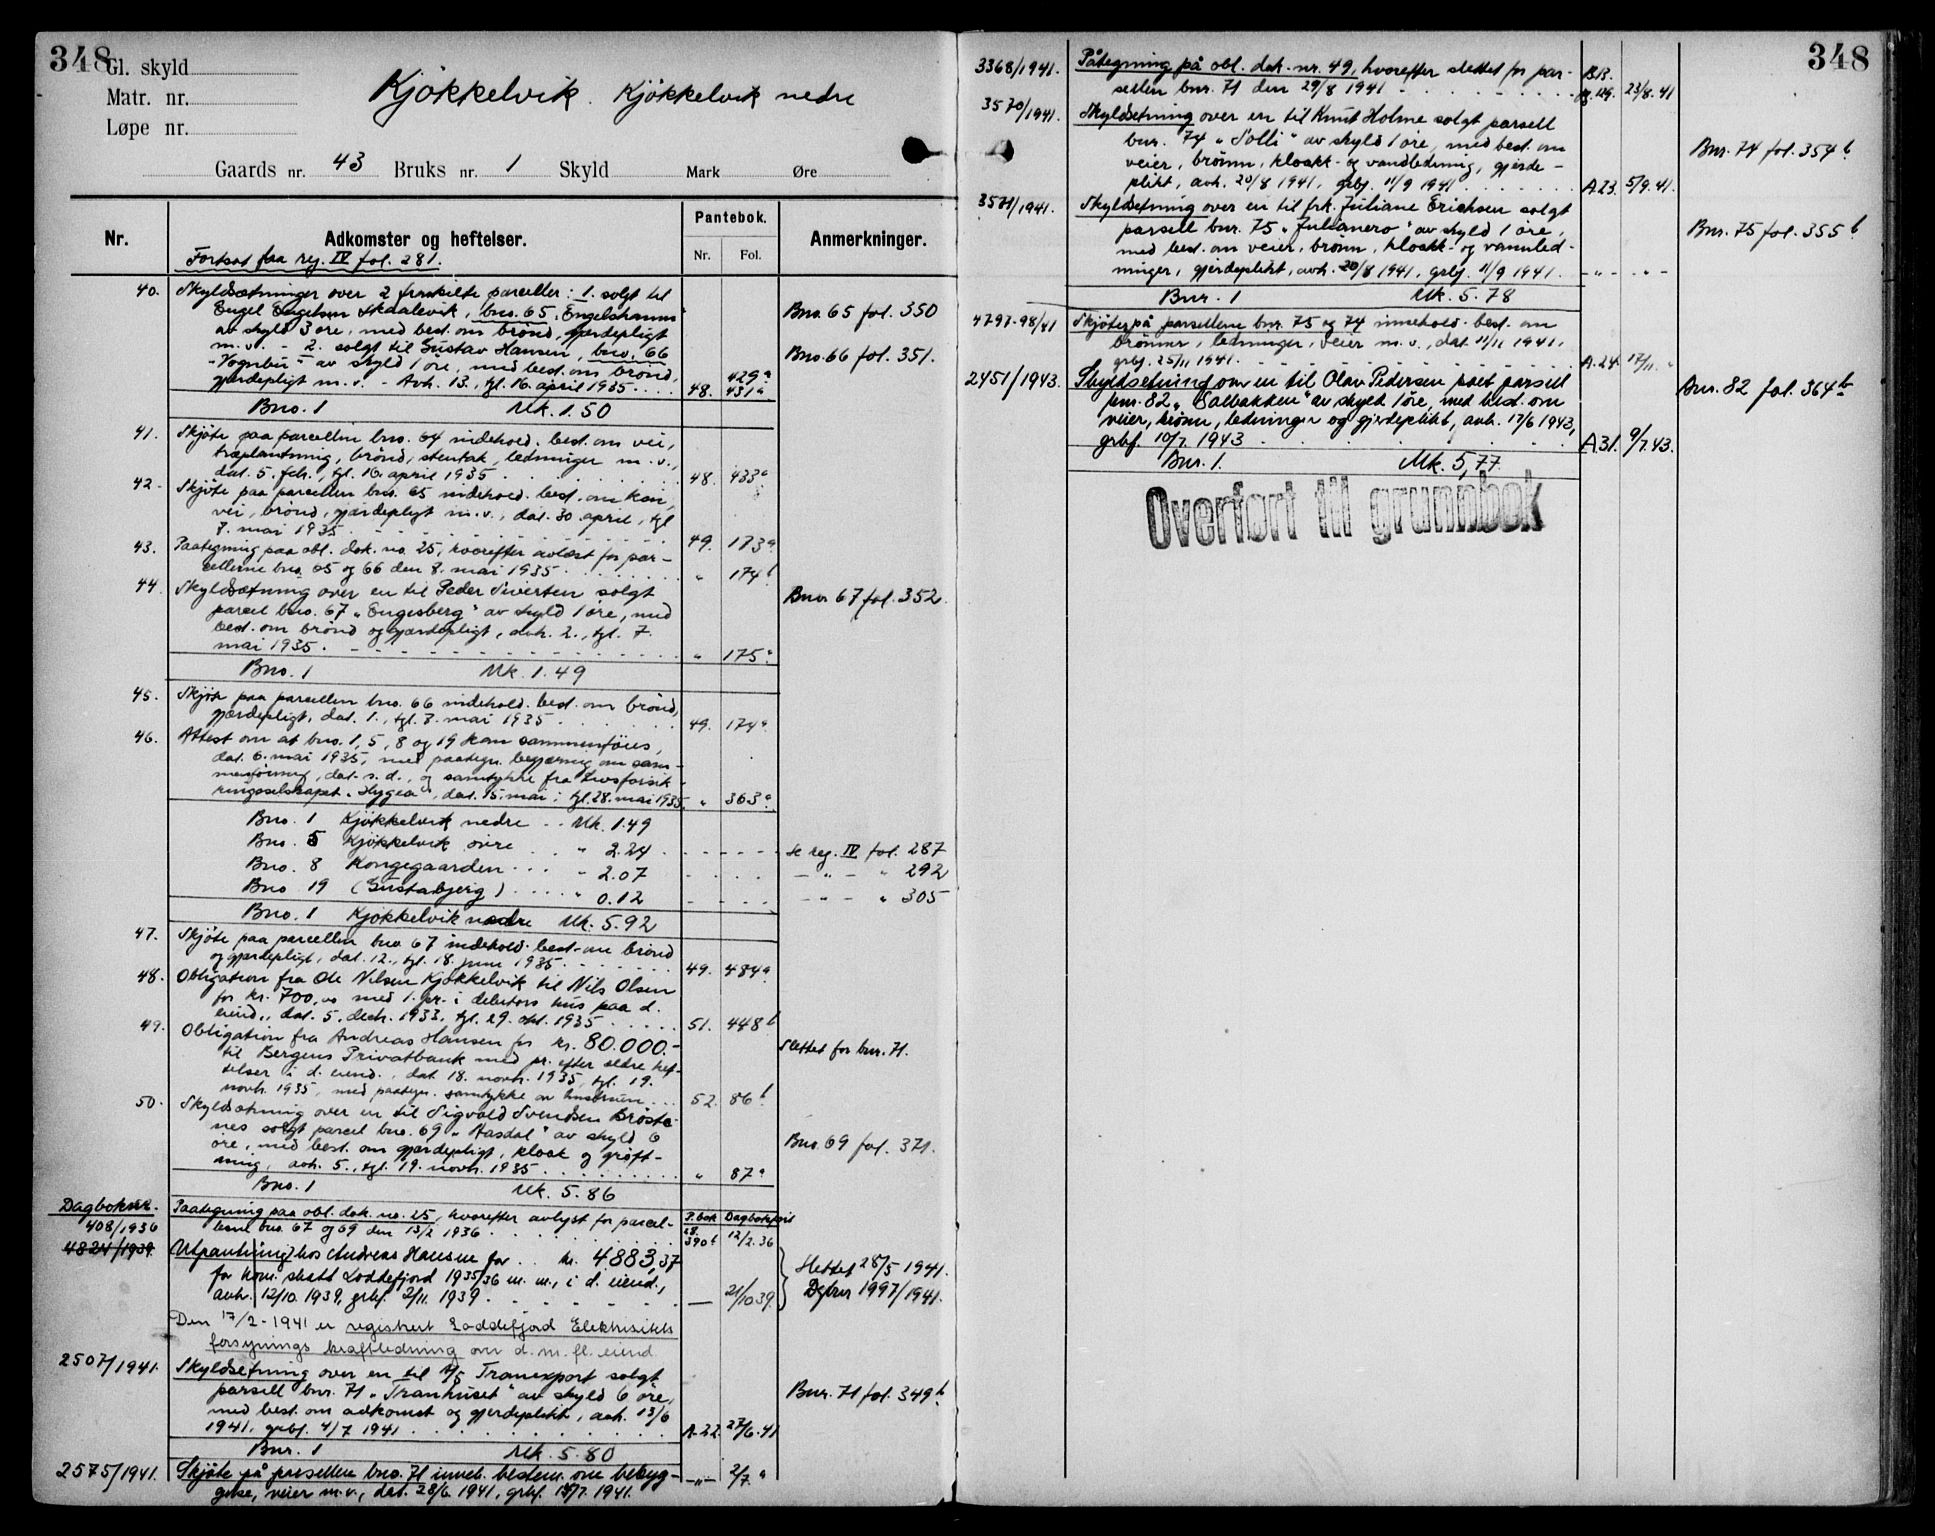 348
Gl. skyld
Matr. nr.
Løpe nr.
Kjøkkelvik. Kjøkkelvik nedre
Gaards nr. 43 Bruks nr. 1 Skyld Mark Øre
Nr. Adkomster og heftelser. Pantebok. Nr. Fol. Anmerkninger.
Fortsat fra reg. IV fol. 281.
40. Skyldsætninger over 2 fraskilte parceller: 1. solgt til
Engel Engelsen Skaalevik, bno. 65, Engelshamn
av skyld 3 øre, med best. om brønd, gjærdepligt Bno. 65 fol. 350
m.v. - 2. solgt til Gustav Hansen, bno. 66
"Vognbu" av skyld 1 øre, med best. om brønd, Bno. 66 fol. 351.
gjærdepligt m.v. - Avh. 13., tgl. 16. april 1935 48. 429a 431a
Bno. 1 Mk. 1.50
41. Skjøte paa parcellen bno. 64 indehold. best. om vei,
træplantning, brønd, stentak, ledninger m.v.,
dat. 5. febr., tgl. 16. april 1935 48. 433a
42. Skjøte paa parcellen bno. 65 indehold. best. om
vei, brønd, gjærdepligt m.v., dat. 30. april, tgl
7. mai 1935 49. 173a
43. Paategning paa obl. dok. no. 25, hvorefter avlæst for par-
cellerne bno. 65 og 66 den 8. mai 1935 " 174b
44. Skyldsætning over en til Peder Sivertsen solgt
parcel bno. 67 "Engesberg" av skyld 1 øre, med Bno 67 fol. 352.
best. om brønd og gjærdepligt, avh. 2., tgl. 7.
mai 1935. " 175a
Bno. 1 Mk. 1.49
45. Skjøte paa parcellen bno. 66 indehold. best. om brønd,
gjærdepligt, dat. 1., tgl. 7. mai 1935 49. 174a
46. Attest om at bno. 1, 5, 8 og 19 kan sammenføies,
dat. 6. mai 1935, med paategn. begjæring om sam-
menføining, dat. s.d., og samtykke fra Livsforsik-
ringsselskapet "Hygea", dat. 15. mai, tgl. 28. mai 1935. " 363a
Bno. 1 Kjøkkelvik nedre Mk. 1.49
Bno. 5 Kjøkkelvik øvre " 2.24 se reg. IV fol. 287
Bno. 8 Kongegaarden " 2.07 - " - " 292
Bno. 19 (Gustabjerg) " 0.12 - " - " 305
Bno. 1 Kjøkkelvik nedre Mk. 5.92
47. Skjøte paa parcellen bno 67 indehold. best. om brønd
og gjærdepligt, dat. 12., tgl. 18. juni 1935 49. 484a
48. Obligation fra Ole Nilsen Kjøkkelvik til Nils Olsen
for kr. 700,00 med 1. pr. i debitors hus paa d.
eiend., dat. 5. decbr. 1933, tgl. 29. okt. 1935 51. 448b
49. Obligation fra Andreas Hansen for kr. 80.000.-
til Bergens Privatbank med pr. efter ældre hef- Slettet for bnr. 71.
telser i d. eiend., dat 18. novbr. 1935, tgl. 19.
novbr. 1935, med paategn. samtykke av hustruen 52. 86b
50. Skyldsætning over en til Sigvald Svendsen Brøste-
nes solgt parcel bno. 69 "Aasdal" av skyld 6 Bno. 69 fol. 371.
øre, med best. om gjærdepligt, kloak og grøft-
ning, avh. 5., tgl. 19. novbr. 1935 " 87a
Bno. 1 Mk. 5.86
Dagboksnr. Paategning paa obl. dok. no. 25, hvorefter avlyst for parcel- P.bok Dagbokført
408/1936 lerne bno. 67 og 69 den 13/2 1936 28. 390b 12/2.36
4824/1939. Utpantning hos Andreas Hansen for kr. 4.883,37 Slettet 28/5 1941.
for kom. skatt Loddefjord 1935/36 m.m., i d. eiend., Dgbnr 1997/1941.
avh. 12/10 1939, grbf. 2/11. 1939. — 21/10 39.
Den 17/2-1941 er registrert Loddefjord Elektrisitets
forsynings kraftledning over d.m.fl. eiend
2507/1941. Skyldsetning over en til A/S Tranexport solgt
parsell bnr. 71 "Tranhuset" av skyld 6 øre, Bnr. 71 fol. 349b.
med best. om adkomst og gjerdeplikt, avh. 13/6
1941, grbf. 4/7 1941 A.22. 27/6.41
Bnr. 1 Mk. 5.80
2575/1941. Skjøte på parsellen bno. 71 inneh. bestem. om bebyg- —"— 2/7. "
gelse, veier m.v., dat. 28/6 1941, grbf. 1941.
348
3368/1941. Påtegning på obl. dok. nr. 49, hvorefter slettet for par- B.B.
sellen bnr. 71 den 29/8 1941 23/8.41
3570/1941. Skyldsetning over en til Knut Holme solgt parsell
bnr. 74 "Solli" av skyld 1 øre, med best. om Bnr. 74 fol. 354b.
veier, brønn, kloakk- og vandledning, gjerde-
plikt, avh. 20/8 1941, grbf. 11/9 1941 A.23. 5/9.41.
3571/1941. Skyldsetning over en til frk. Juliane Erichsen solgt
parsell bnr. 75 "Julianero" av skyld 1 øre, Bnr. 75 fol. 355b.
med best. om veier, brønn, kloakk- og vannled-
ninger, gjerdeplikt, avh. 20/8 1941, grbf. 11/9 1941. - " - - " -
Bnr. 1 Mk. 5.78
4797-98/41 Skjøter på parsellene bnr. 75 og 74 innehold. best. om
brønner, ledninger, veier m.v., dat. 11/11 1941,
grbf. 25/11 1941. A.24. 17/11. "
2451/1943. Skyldsetning over en til Olav Pedersen solgt parsell
bnr. 82 "Solbakken" av skyld 1 øre, med best. om Bnr. 82 fol. 364b
veier, brønn, ledninger og gjerdeplikt, avh. 17/6 1943,
grbf. 10/7. 1943 A.31. 9/7.43.
Bnr. 1. Mk. 5,77.
Overført til grunnbok